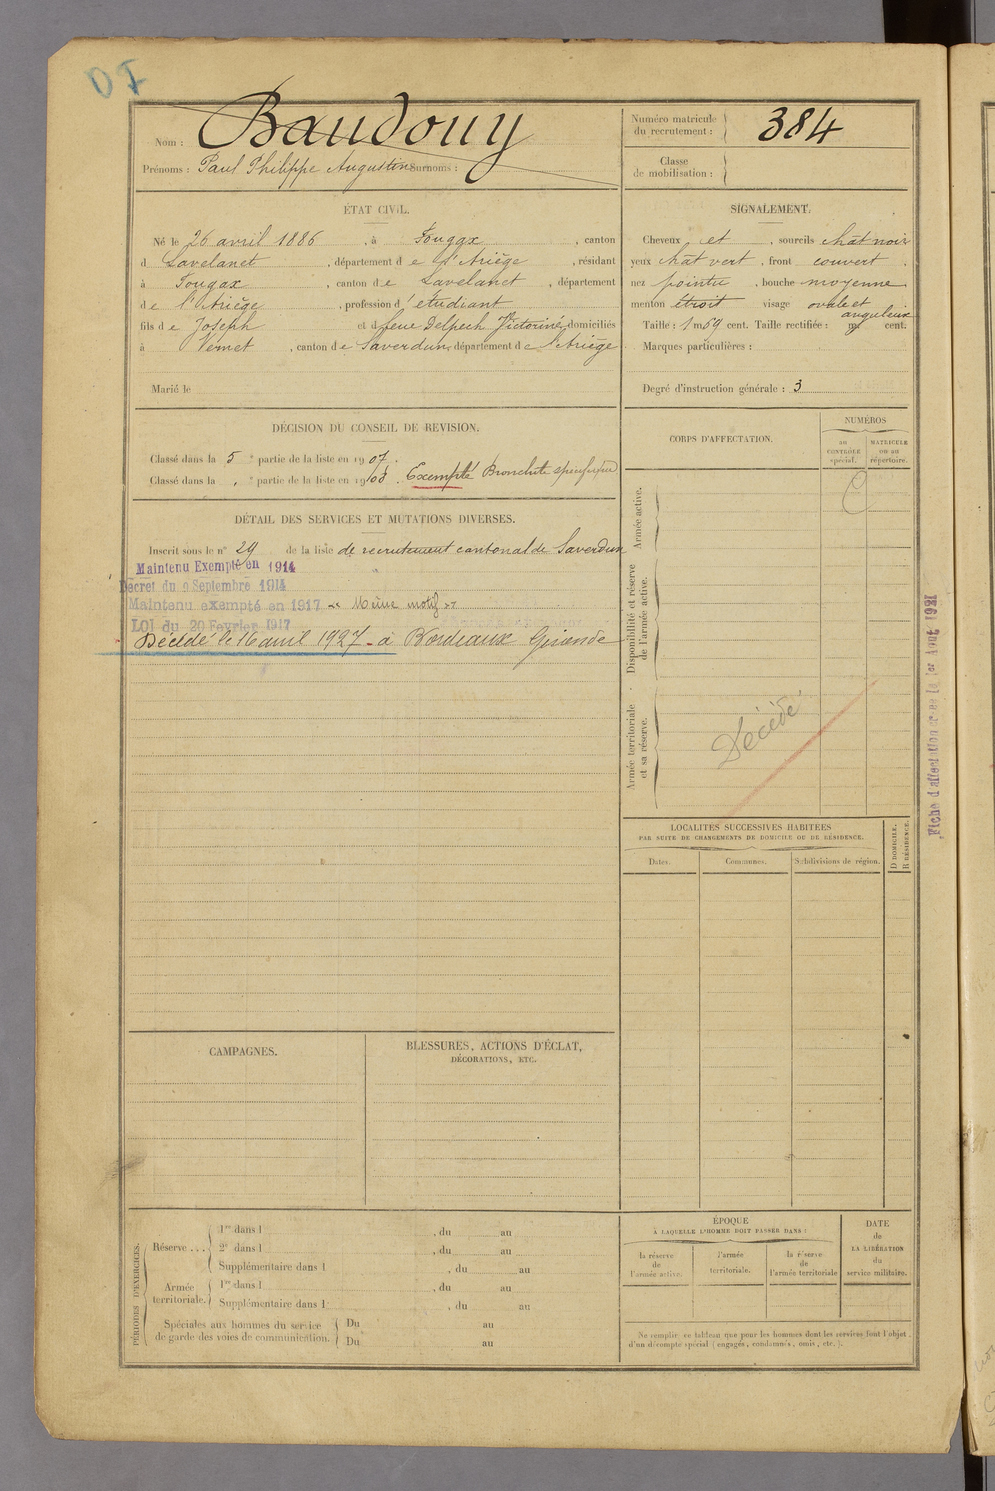 DI
Nom : Baudouy
Prénoms : Paul Philippe Augustin Surnoms :
Numéro matricule du recrutement : 384
Classe de mobilisation :
ÉTAT CIVIL.
Né le 26 avril 1886, à Fougax, canton
d Lavelanet, département de l'Ariège, résidant
à Fougax, canton de Lavelanet, département
de l'Ariège, profession d'étudiant
fils de Joseph et d feue Delpech Victorine, domiciliés
à Vernet, canton de Saverdun, département de l'Ariège
Marié le
SIGNALEMENT.
Cheveux et, sourcils chât noir
yeux chât vert, front couvert.
nez pointu, bouche moyenne
menton étroit visage ovale et
anguleux
Taille : 1 m 59 cent. Taille rectifiée : m cent.
Marques particulières :
Degré d'instruction générale : 3
DÉCISION DU CONSEIL DE REVISION.
Classé dans la 5e partie de la liste en 1907.
Classé dans la e partie de la liste en 1908. Exempté Bronchite
DÉTAIL DES SERVICES ET MUTATIONS DIVERSES.
Inscrit sous le n° 29 de la liste de recrutement cantonal de Saverdun
Maintenu Exempté en 1914
Décret du 9 Septembre 1914
Maintenu exempté en 1917 "Même motif"
LOI du 20 Février 1917
Décédé le 16 avril 1927 - à Bordeaux Gironde
CORPS D'AFFECTATION.
NUMÉROS
au CONTRÔLE spécial.
MATRICULE ou au répertoire.
Armée active.
Disponibilité et réserve de l'armée active.
Armée territoriale et sa réserve.
C
Décédé
Fiche d'affectation créée le 1er Août 1921
LOCALITÉS SUCCESSIVES HABITÉES
PAR SUITE DE CHANGEMENTS DE DOMICILE OU DE RÉSIDENCE.
D DOMICILE.
R RÉSIDENCE.
Dates.
Communes.
Subdivisions de région.
CAMPAGNES.
BLESSURES, ACTIONS D'ÉCLAT,
DÉCORATIONS, ETC.
PÉRIODES D'EXERCICES.
Réserve...
1re dans l , du au
2e dans l , du au
Supplémentaire dans l , du au
Armée territoriale.
1re dans l , du au
Supplémentaire dans l , du au
Spéciales aux hommes du service
de garde des voies de communication.
Du au
Du au
ÉPOQUE
À LAQUELLE L'HOMME DOIT PASSER DANS :
la réserve de l'armée active.
l'armée territoriale.
la réserve de l'armée territoriale
DATE
de
LA LIBÉRATION
du
service militaire.
Ne remplir ce tableau que pour les hommes dont les services font l'objet
d'un décompte spécial (engagés, condamnés, omis, etc.).